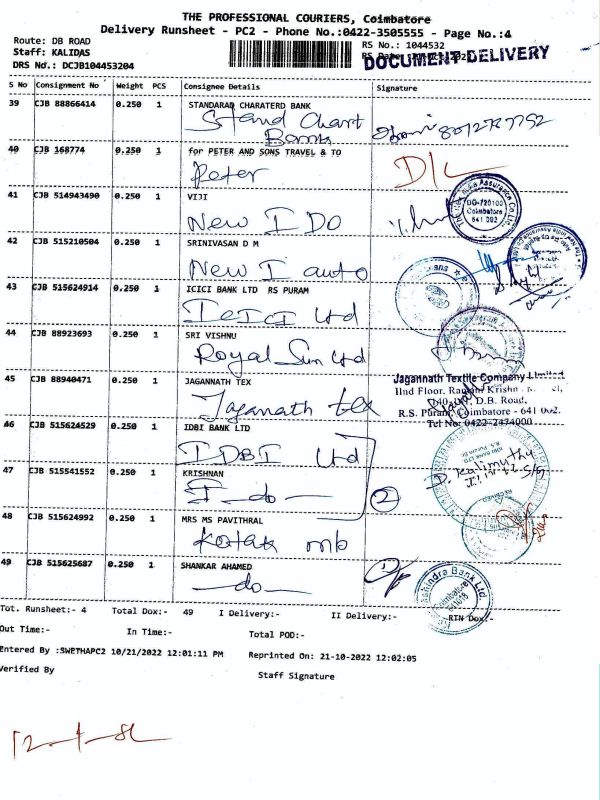 THE PROFESSIONAL COURIERS, Coimbatore
Delivery Runsheet - PC2 - Phone No.:0422-3505555 - Page No.:4
Route: DB ROAD
RS No.: 1044532
Staff: KALIDAS
DOCUMENT DELIVERY
DRS No.: DCJB104453204
S No Consignment No Weight PCS Consignee Details Signature
39 CJB 88866414 0.250 1 STANDARAD CHARATERD BANK
Stand Chart
Bank
40 CJB 168774 0.250 1 for PETER AND SONS TRAVEL & TO
Peter D/L
41 CJB 514943490 0.250 1 VIJI
New I DO
42 CJB 515210504 0.250 1 SRINIVASAN D M
New I auto
43 CJB 515624914 0.250 1 ICICI BANK LTD RS PURAM
ICICI Ltd
44 CJB 88923693 0.250 1 SRI VISHNU
Royal Sun Ltd
45 CJB 88940471 0.250 1 JAGANNATH TEX
Jagannath tex
Jagannath Textile Company Limited
IInd Floor,
D.B. Road,
R.S. Puram, Coimbatore - 641 002.
Tel No: 0422-2474000
46 CJB 515624529 0.250 1 IDBI BANK LTD
IDBI Ltd
47 CJB 515541552 0.250 1 KRISHNAN
do 2
48 CJB 515624992 0.250 1 MRS MS PAVITHRAL
Kotak mb
49 CJB 515625687 0.250 1 SHANKAR AHAMED
do
Tot. Runsheet:- 4 Total Dox:- 49 I Delivery:- II Delivery:- RTN Dox:-
Out Time:- In Time:- Total POD:-
Entered By :SWETHAPC2 10/21/2022 12:01:11 PM Reprinted On: 21-10-2022 12:02:05
Verified By Staff Signature